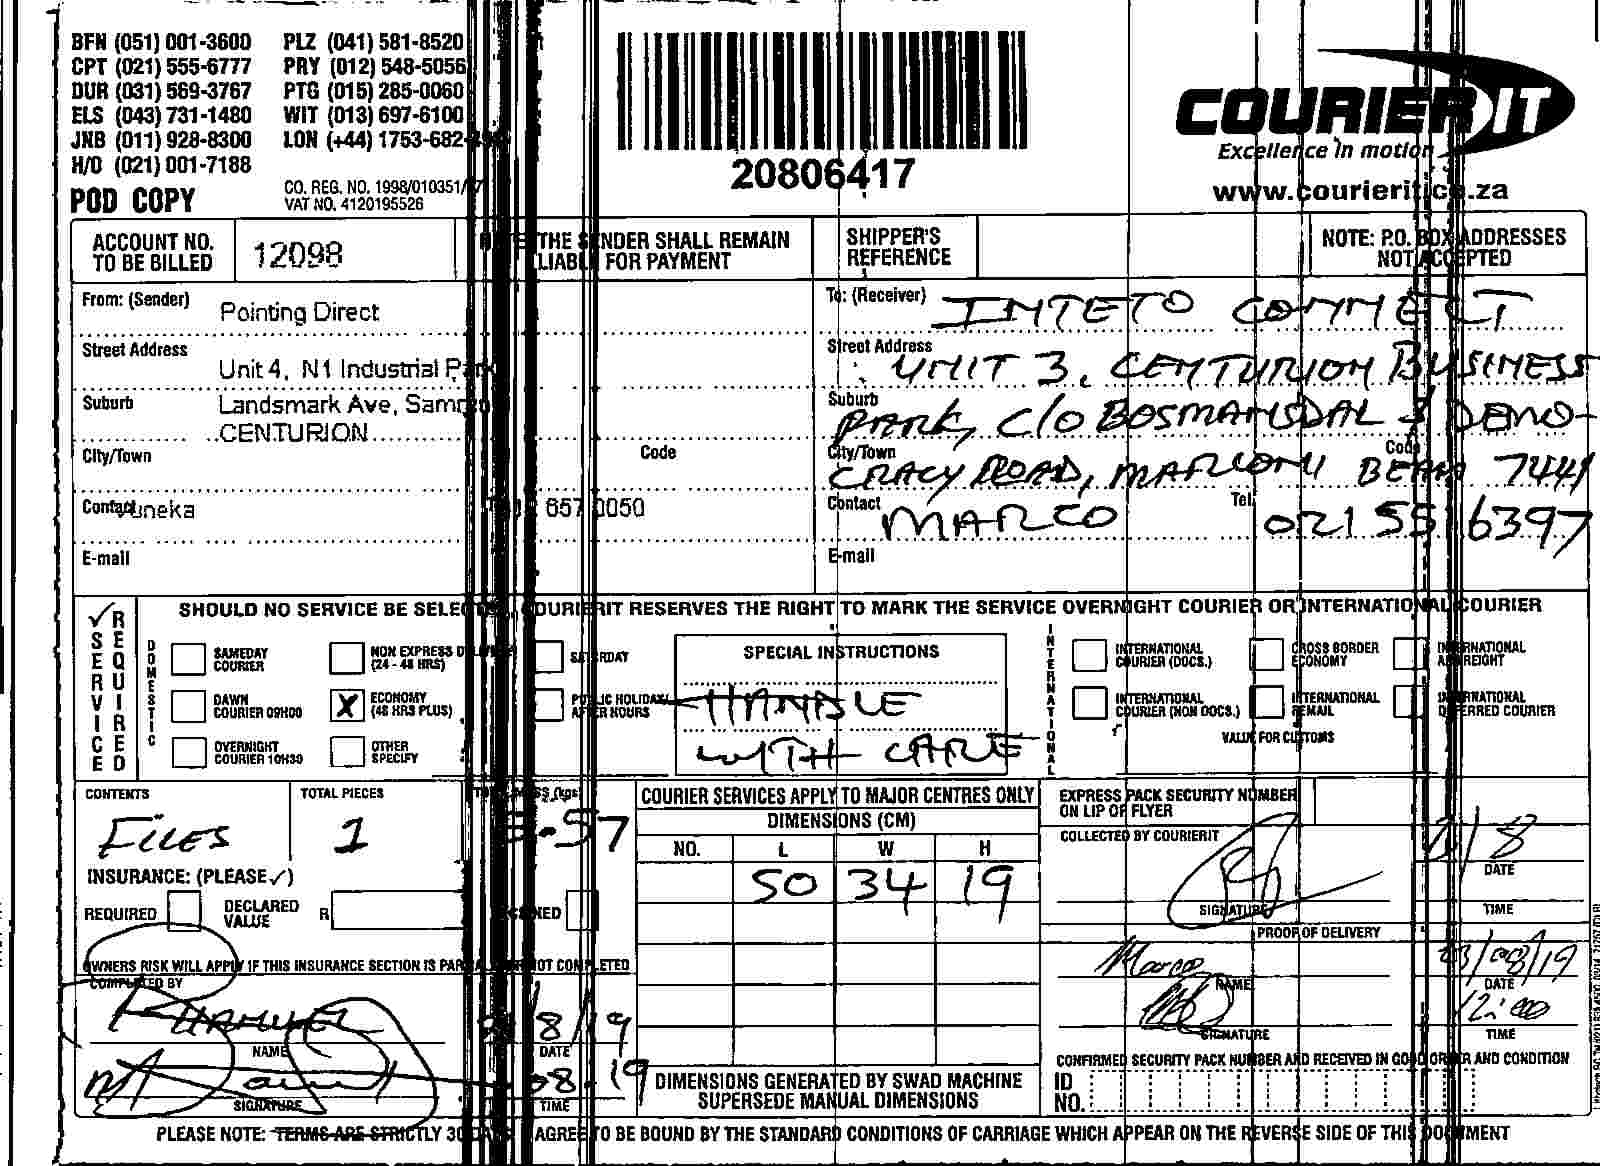 BFN (051) 001-3600 PLZ (041) 581-8520
CPT (021) 555-6777 PRY (012) 548-5056
DUR (031) 569-3767 PTG (015) 285-0060
ELS (043) 731-1480 WIT (013) 697-6100
JNB (011) 928-8300 LON (+44) 1753-682-
H/O (021) 001-7188
POD COPY
CO. REG. NO. 1998/010351/
VAT NO. 4120195526
20806417
COURIER IT
Excellence in motion
www.courierit.co.za
ACCOUNT NO. TO BE BILLED
12098
THE SENDER SHALL REMAIN
LIABLE FOR PAYMENT
SHIPPER'S REFERENCE
NOTE: P.O. BOX ADDRESSES
NOT ACCEPTED
From: (Sender) Pointing Direct
Street Address
Unit 4, N1 Industrial Park
Suburb Landsmark Ave,
CENTURION
City/Town Code
Contact 657 0050
E-mail
To: (Receiver) INTETO CONNECT
Street Address
UNIT 3, CENTURION BUSINESS
Suburb
PARK, C/O BOSMANSDAL & DEMO-
City/Town Code
CRACY ROAD, MARCONI BEAM 7441
Contact MARCO Tel. 021 55 6397
E-mail
SHOULD NO SERVICE BE SELECTED, COURIERIT RESERVES THE RIGHT TO MARK THE SERVICE OVERNIGHT COURIER OR INTERNATIONAL COURIER
✓ SERVICE REQUIRED
DOMESTIC
SAMEDAY COURIER
NON EXPRESS DELIVERY (24 - 48 HRS)
SATURDAY
DAWN COURIER 09H00
X ECONOMY (48 HRS PLUS)
PUBLIC HOLIDAY/ AFTER HOURS
OVERNIGHT COURIER 10H30
OTHER SPECIFY
SPECIAL INSTRUCTIONS
HANDLE
WITH CARE
INTERNATIONAL
INTERNATIONAL COURIER (DOCS.)
CROSS BORDER ECONOMY
INTERNATIONAL AIRFREIGHT
INTERNATIONAL COURIER (NON DOCS.)
INTERNATIONAL REMAIL
INTERNATIONAL DEFERRED COURIER
VALUE FOR CUSTOMS
CONTENTS
FILES
TOTAL PIECES
1
INSURANCE: (PLEASE ✓)
REQUIRED DECLARED VALUE R
OWNERS RISK WILL APPLY IF THIS INSURANCE SECTION IS NOT COMPLETED
COMPLETED BY
8/19
NAME DATE
08.19
SIGNATURE TIME
COURIER SERVICES APPLY TO MAJOR CENTRES ONLY
DIMENSIONS (CM)
NO. L W H
50 34 19
DIMENSIONS GENERATED BY SWAD MACHINE
SUPERSEDE MANUAL DIMENSIONS
EXPRESS PACK SECURITY NUMBER
ON LIP OF FLYER
COLLECTED BY COURIERIT
DATE
SIGNATURE TIME
PROOF OF DELIVERY
Marco /08/19
NAME DATE
12:00
SIGNATURE TIME
CONFIRMED SECURITY PACK NUMBER AND RECEIVED IN GOOD ORDER AND CONDITION
ID NO.
PLEASE NOTE: TERMS ARE STRICTLY 30 DAYS. I AGREE TO BE BOUND BY THE STANDARD CONDITIONS OF CARRIAGE WHICH APPEAR ON THE REVERSE SIDE OF THIS DOCUMENT